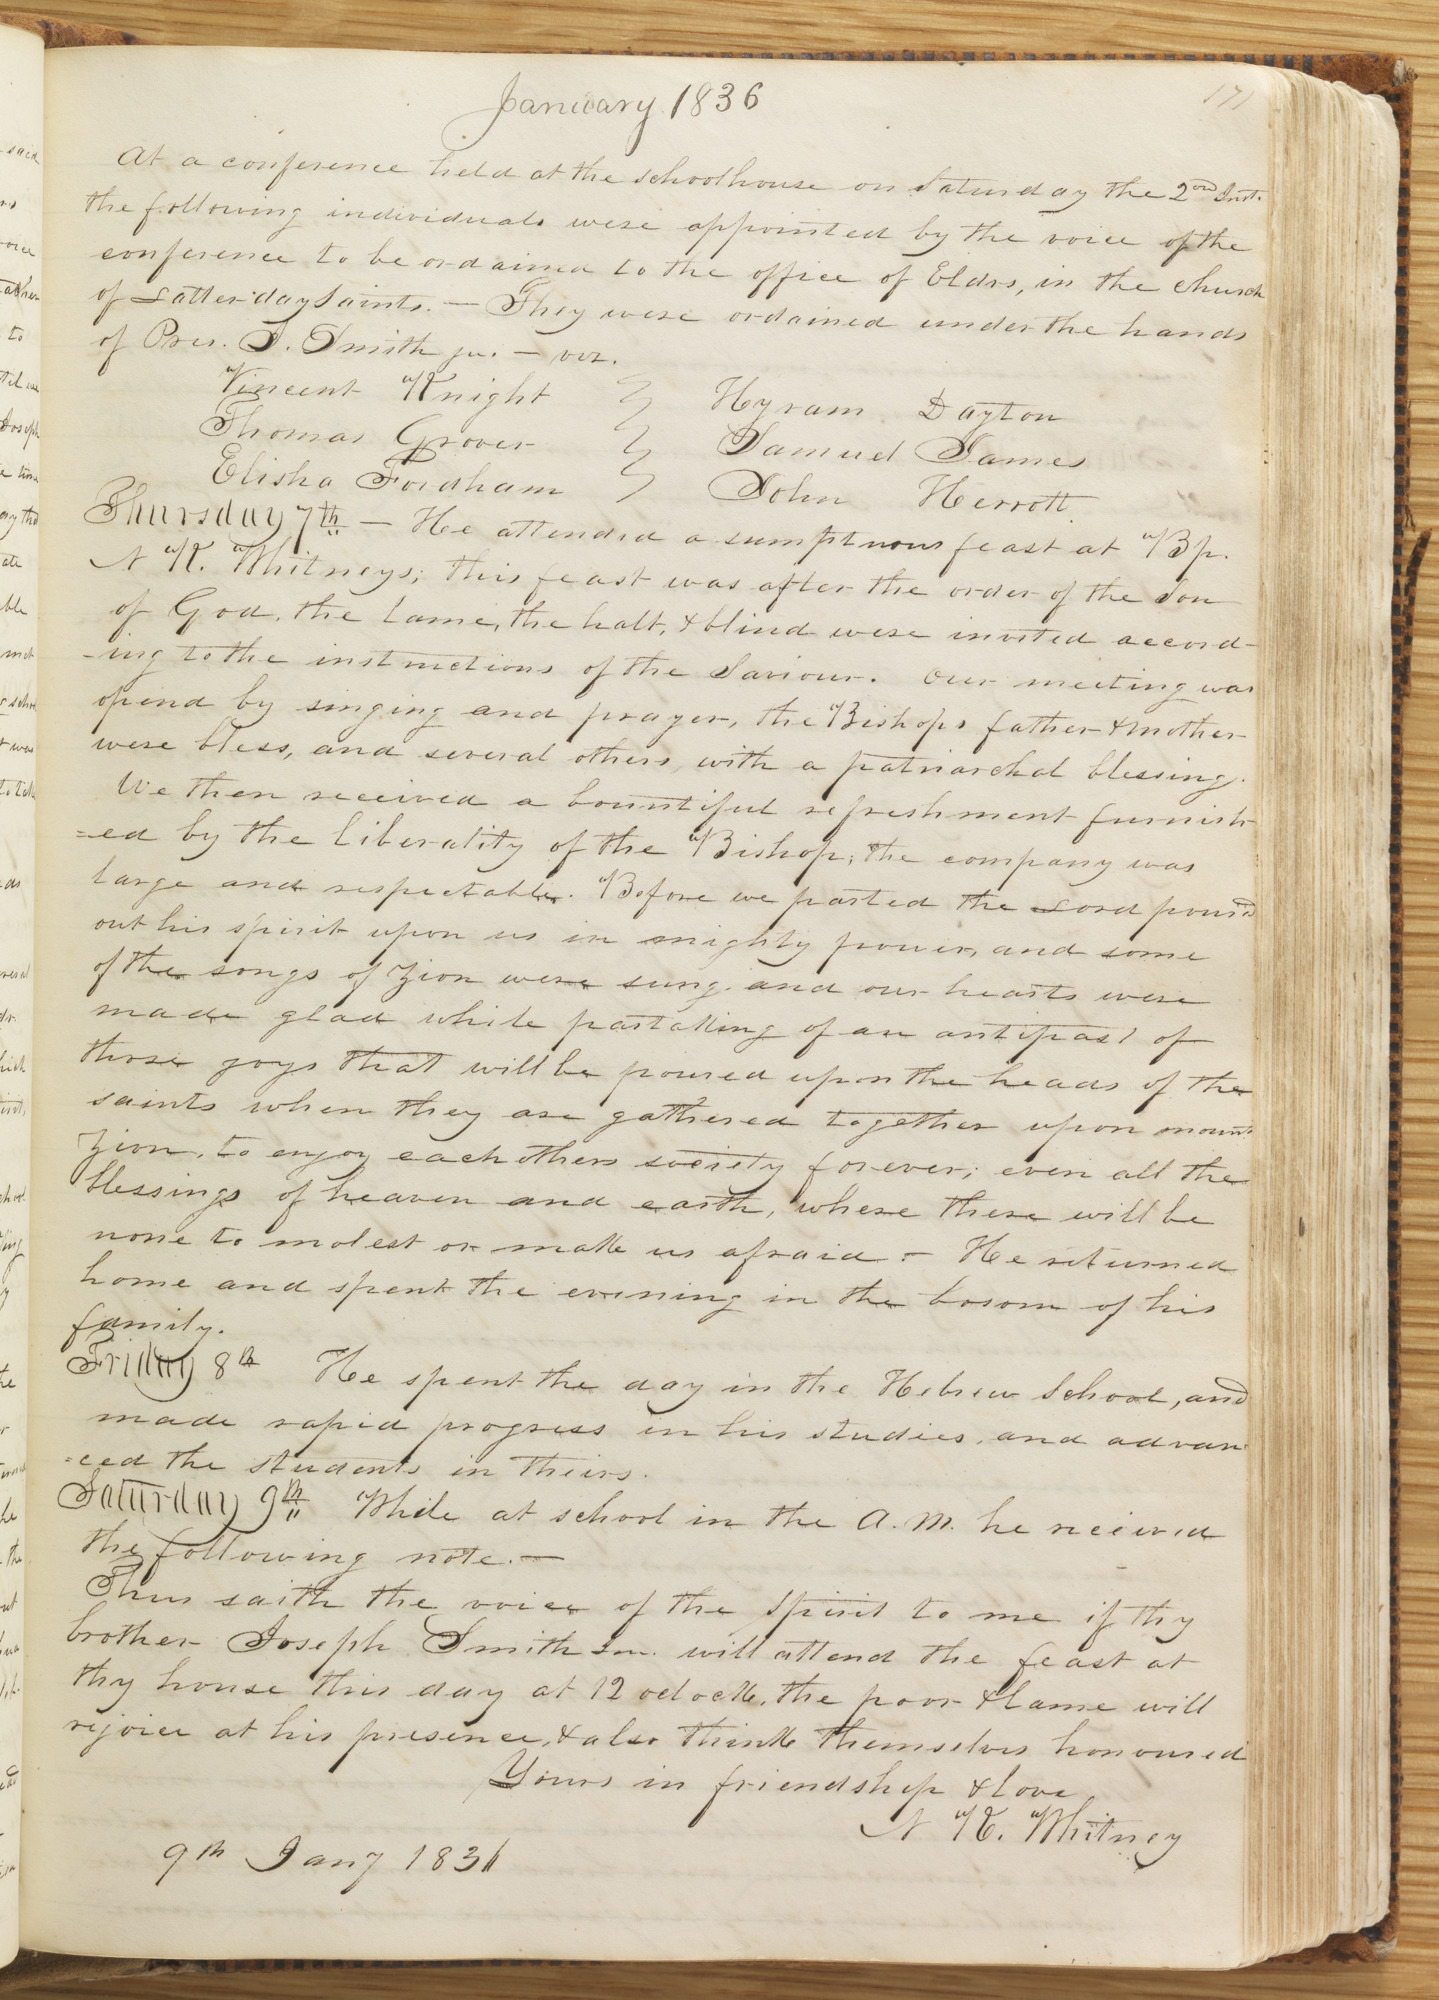 January 1836
171
At a conference held at the schoolhouse on Saturday the 2nd Inst.
the following individuals were appointed by the voice of the
conference to be ordained to the office of Eldrs, in the church
of Latter day Saints. — They were ordained under the hands
of Pres. J. Smith jun. — viz.
Vincent Knight } Hyram Dayton
Thomas Grover } Samuel James
Elisha Fordham } John Herrott
Thursday 7th — He attended a sumptuous feast at Bp.
N K. Whitneys; this feast was after the order of the Son
of God, the lame, the halt, & blind were invited accord-
-ing to the instructions of the Saviour. Our meeting was
opend by singing and prayer, the Bishops father & mother
were bless, and several others, with a patriarchal blessing.
We then received a bountiful refreshment furnish-
=ed by the liberality of the Bishop; the company was
large and respectable. Before we parted the Lord pour'd
out his spirit upon us in mighty power, and some
of the songs of Zion were sung and our hearts were
made glad while partaking of an antipast of
those joys that will be poured upon the heads of the
saints when they are gathered together upon mount
Zion, to enjoy each others society forever; even all the
blessings of heaven and earth, where there will be
none to molest or make us afraid. — He returned
home and spent the evening in the bosom of his
family.
Friday 8th He spent the day in the Hebrew School, and
made rapid progress in his studies, and advan
=ced the students in theirs.
Saturday 9th While at school in the A.M. he received
the following note. —
Thus saith the voice of the spirit to me if thy
brother Joseph Smith Jun. will attend the feast at
thy house this day at 12 oclock, the poor & lame will
rejoice at his presence, & also think themselves honoured
Yours in friendship & love
N K. Whitney
9th Jany 1836